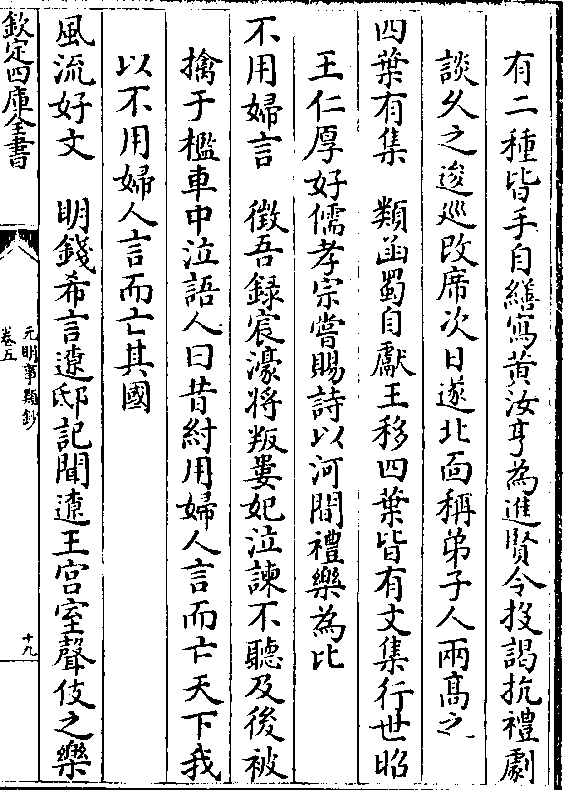 有二種皆手自繕寫黃汝亨為進賢令投謁抗禮劇
談久之逡巡改席次日遂北面稱弟子人兩高之
四葉有集　類函蜀自獻王移四葉皆有文集行世昭
王仁厚好儒孝宗嘗賜詩以河間禮樂為比
不用婦言　徵吾録宸濠將叛婁妃泣諫不聽及後被
擒于檻車中泣語人曰昔紂用婦人言而亡天下我
以不用婦人言而亡其國
風流好文　明錢希言遼邸記聞遼王宫室聲伎之樂
欽定四庫全書
元明事類鈔
卷五
十九